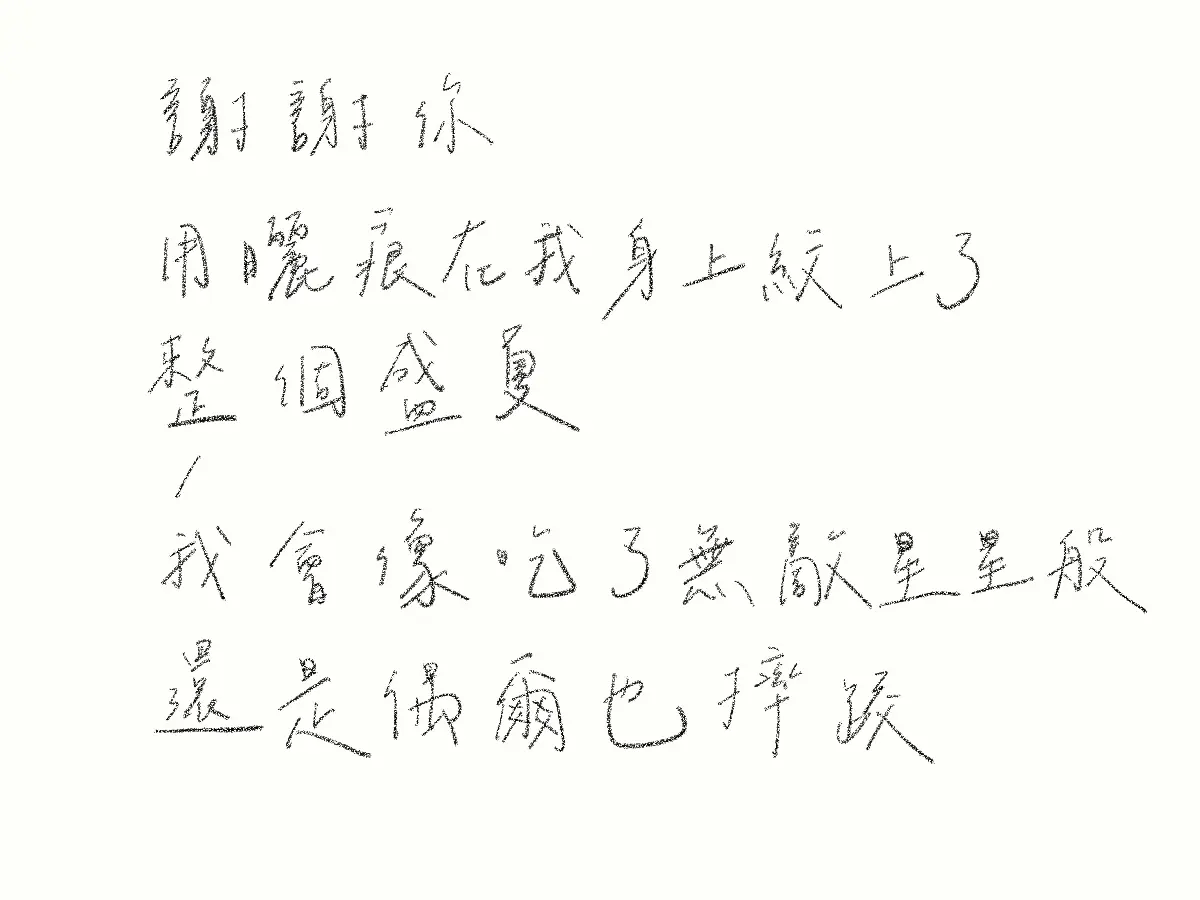 謝謝你
用曬痕在我身上紋上了
整個盛夏
/
我會像吃了無敵星星般
還是偶爾也摔跤